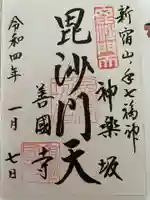 新宿山ノ手七福神
神樂坂
毘沙門天
善國寺
令和四年
一月
七日